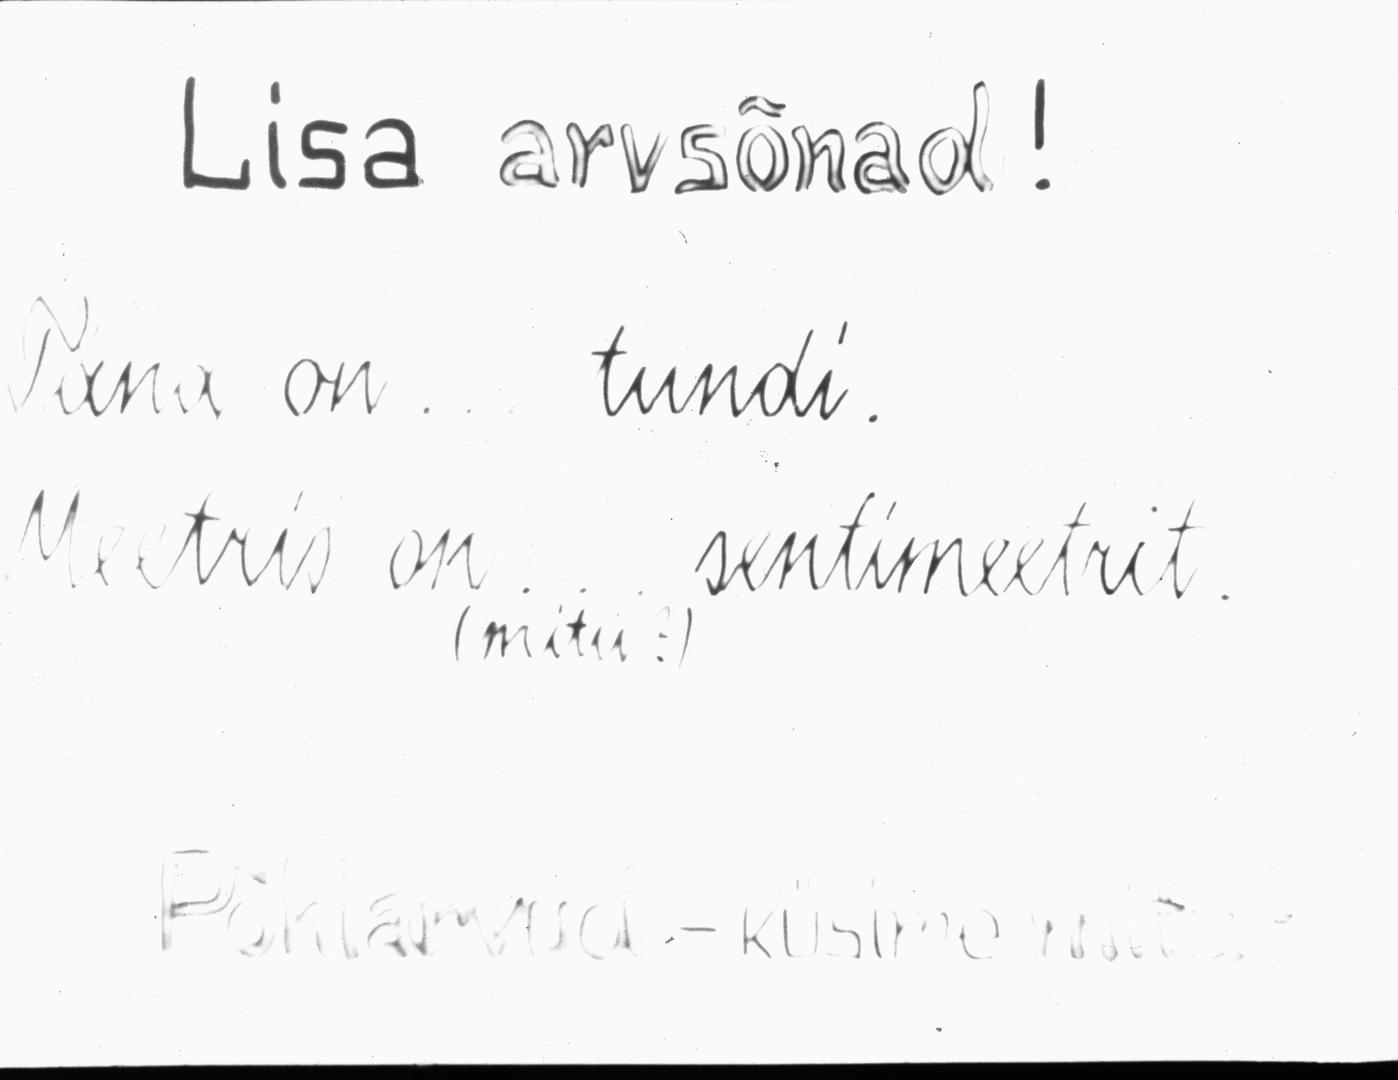 Lisa arvsõnad!
Täna on... tundi.
Meetris on... sentimeetrit.
(mitu?)
Põhiarvud - küsime mitu?